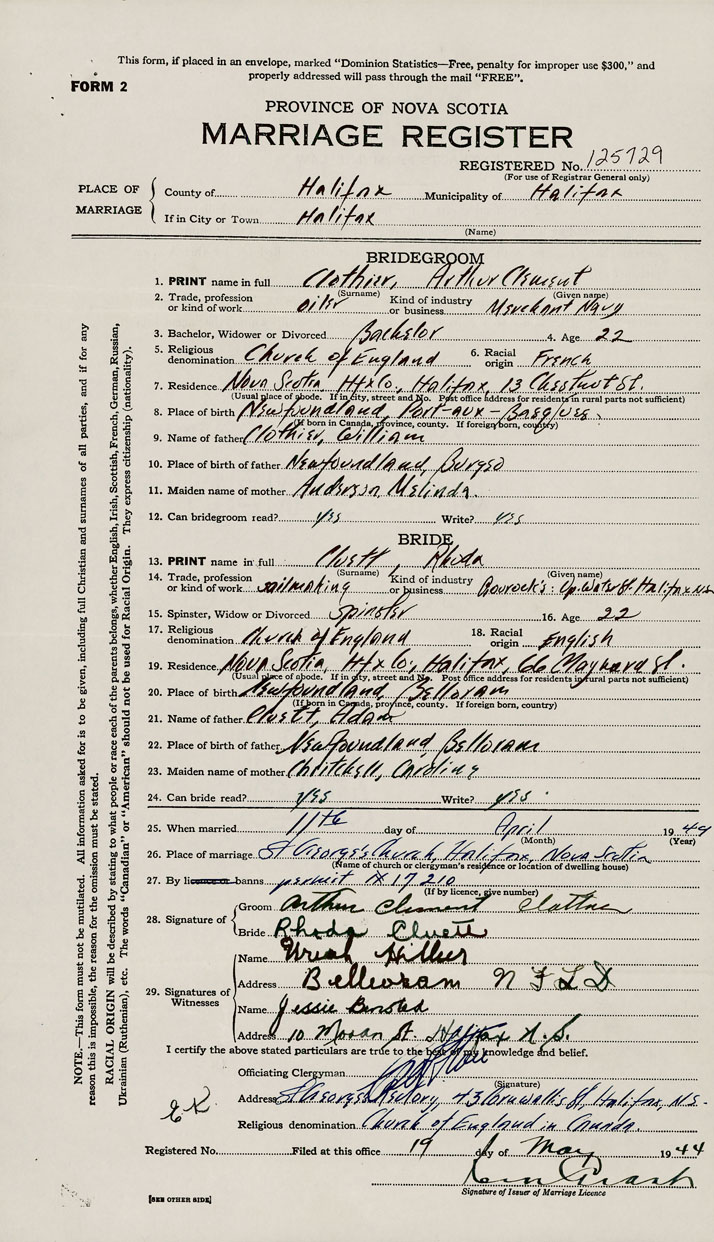 This form, if placed in an envelope, marked “Dominion Statistics—Free, penalty for improper use $300,” and
properly addressed will pass through the mail “FREE”.
FORM 2
PROVINCE OF NOVA SCOTIA
MARRIAGE REGISTER
REGISTERED No. 125729
(For use of Registrar General only)
PLACE OF MARRIAGE
County of Halifax Municipality of Halifax
If in City or Town Halifax
(Name)
BRIDEGROOM
1. PRINT name in full Clothier, Arthur Clement
(Surname) (Given name)
2. Trade, profession or kind of work oiler Kind of industry or business Merchant Navy
3. Bachelor, Widower or Divorced Bachelor 4. Age 22
5. Religious denomination Church of England 6. Racial origin French
7. Residence Nova Scotia, Hfx Co, Halifax, 13 Chestnut St.
(Usual place of abode. If in city, street and No. Post office address for residents in rural parts not sufficient)
8. Place of birth Newfoundland, Port-aux-Basques.
(If born in Canada, province, county. If foreign born, country)
9. Name of father Clothier, William
10. Place of birth of father Newfoundland, Burgeo
11. Maiden name of mother Anderson, Melinda.
12. Can bridegroom read? yes Write? yes
BRIDE
13. PRINT name in full Cluett, Rhoda
(Surname) (Given name)
14. Trade, profession or kind of work sailmaking Kind of industry or business Gourock's: Up. Water St. Halifax N.S.
15. Spinster, Widow or Divorced Spinster 16. Age 22
17. Religious denomination Church of England 18. Racial origin English
19. Residence Nova Scotia, Hfx Co, Halifax, Maynard St.
(Usual place of abode. If in city, street and No. Post office address for residents in rural parts not sufficient)
20. Place of birth Newfoundland, Belloram
(If born in Canada, province, county. If foreign born, country)
21. Name of father Cluett, Adam
22. Place of birth of father Newfoundland, Belloram
23. Maiden name of mother , Caroline
24. Can bride read? yes Write? yes.
25. When married 11th day of April 1944
(Month) (Year)
26. Place of marriage St George's Church, Halifax, Nova Scotia
(Name of church or clergyman's residence or location of dwelling house)
27. By licence banns permit 17210
(If by licence, give number)
28. Signature of
Groom Arthur Clement
Bride Rhoda Cluett
29. Signatures of Witnesses
Name Uriah Hillier
Address Belleoram NFLD
Name Jessie
Address 10 Moran St. Halifax N.S.
I certify the above stated particulars are true to the best of my knowledge and belief.
Officiating Clergyman
(Signature)
Address St George's Rectory, 43 Cornwallis St, Halifax, N.S.
Religious denomination Church of England in Canada.
Registered No. Filed at this office 19 day of May 1944
Signature of Issuer of Marriage Licence
[SEE OTHER SIDE]
NOTE.—This form must not be mutilated. All information asked for is to be given, including full Christian and surnames of all parties, and if for any
reason this is impossible, the reason for the omission must be stated.
RACIAL ORIGIN will be described by stating to what people or race each of the parents belongs, whether English, Irish, Scottish, French, German, Russian,
Ukrainian (Ruthenian), etc. The words “Canadian” or “American” should not be used for Racial Origin. They express citizenship (nationality).